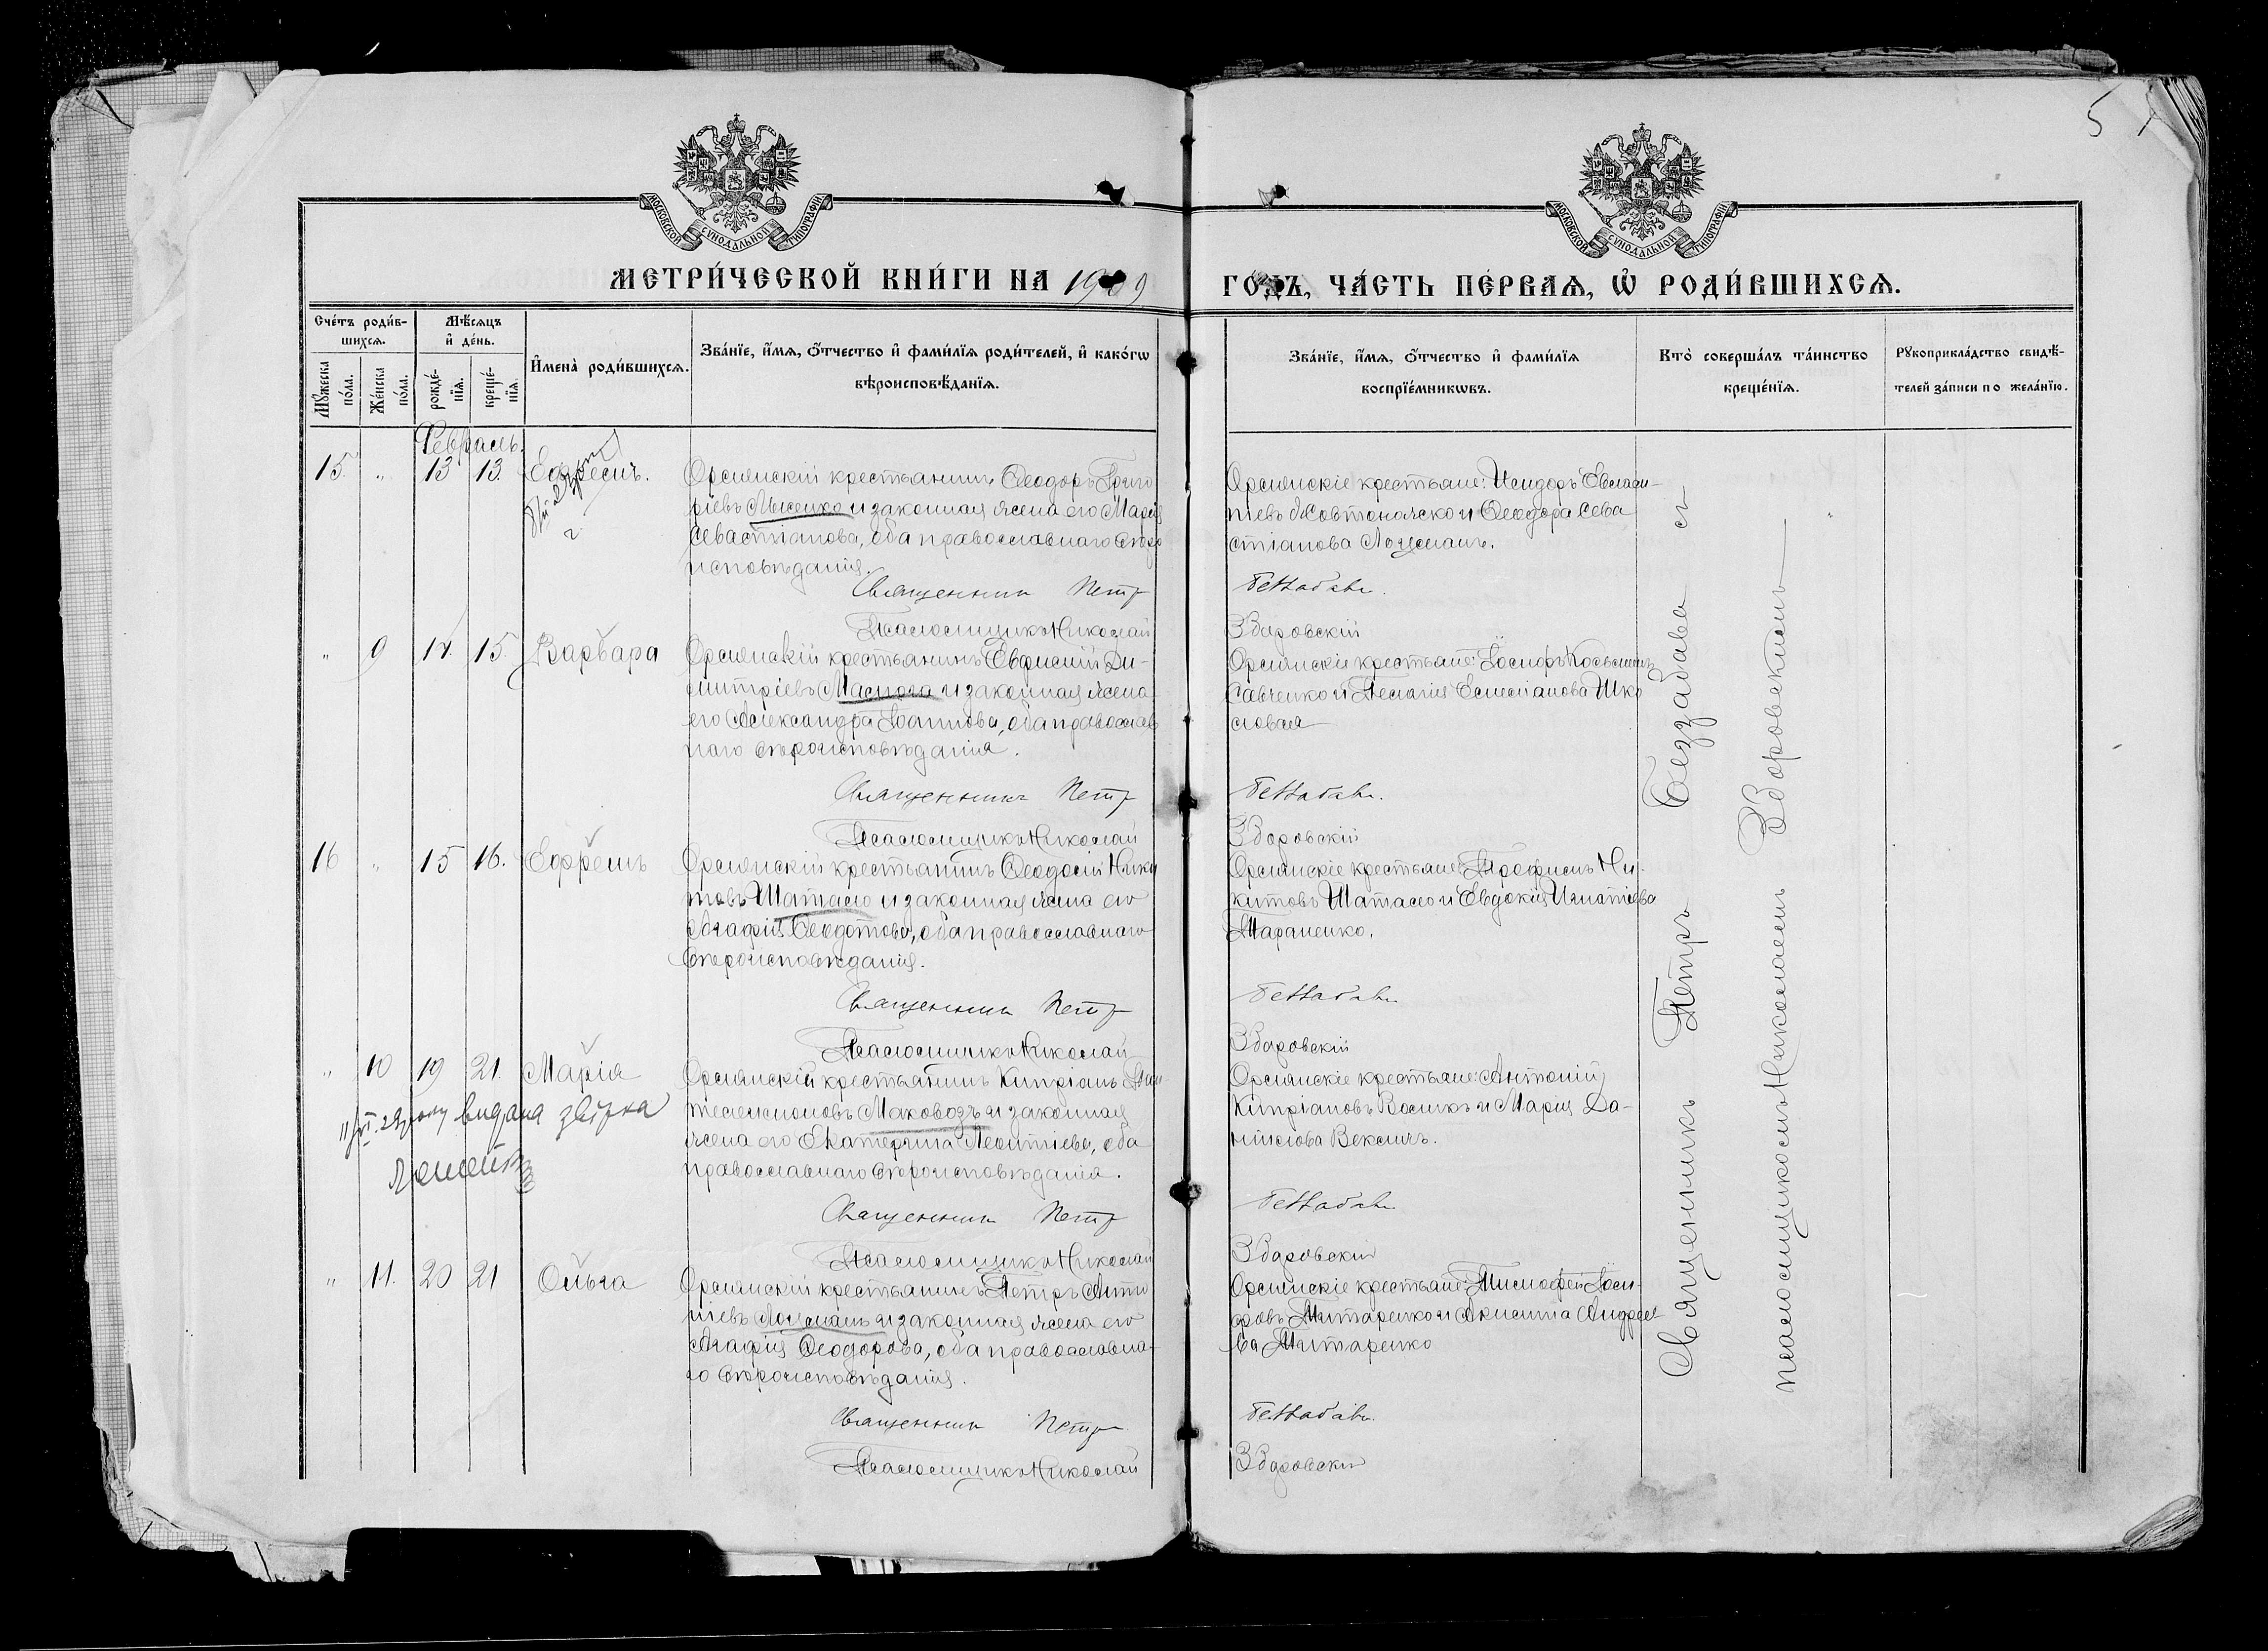 5
МОСКОВСКОЙ СѴНОДАЛЬНОЙ ТИПОГРАФІИ
МОСКОВСКОЙ СѴНОДАЛЬНОЙ ТИПОГРАФІИ
МЕТРИ́ЧЕСКОЙ КНИ́ГИ НА 1909
ГО́ДЪ, ЧА́СТЬ ПЕ́РВАѦ, Ѡ҆ РОДИ́ВШИХСѦ.
Сче́тъ роди́в-
шихсѧ.
Мꙋ́жеска
по́ла.
Же́нска
по́ла.
Мѣ́сѧцъ
и҆ де́нь.
рожде́-
нїѧ.
креще́-
нїѧ.
И҆мена̀ роди́вшихсѧ.
Зва́нїе, и҆́мѧ, ѻ҆́тчество и҆ фами́лїѧ роди́телей, и҆ како́гѡ
вѣроисповѣ́данїѧ.
Зва́нїе, и҆́мѧ, ѻ҆́тчество и҆ фами́лїѧ
воспрїе́мникѡвъ.
Кто̀ соверша́лъ та́инство
креще́нїѧ.
Рꙋкоприкла́дство свидѣ́-
телей за́писи по жела́нїю.
Февраль.
15. " 13 13. Ефремъ.
Орлянскій крестьянинъ Ѳеодоръ Григо
ріевъ Лысенко и законная жена его Марія
Севастіанова, оба православнаго вѣро
исповѣданія.
Священникъ Петр
Псаломщикъ Николай
Орлянскіе крестьяне: Исидоръ Евлам-
піевъ Жовтоножко и Ѳеодора Сева
стіанова Лоцманъ.
Беззабава
Здоровскій
" 9 14. 15. Варвара
Орлянскій крестьянинъ Евфимій Ди-
митріевъ Маснога и законная жена
его Александра Іоаннова, оба православ
наго вѣроисповѣданія.
Священникъ Петр
Псаломщикъ Николай
Орлянскіе крестьяне: Іосифъ Косьминъ
Савченко и Пелагія Емиліанова Шко
ловая
Беззабава
Здоровскій
16 " 15 16. Ефремъ
Орлянскій крестьянинъ Ѳеодосій Ники
товъ Шатало и законная жена его
Агафія Ѳеодотова, оба православнаго
вѣроисповѣданія.
Священникъ Петр
Псаломщикъ Николай
Орлянскіе крестьяне: Трофимъ Ни-
китовъ Шатало и Евдокія Игнатіева
Тараненко.
Беззабава
Здоровскій
" 10 19 21. Марія
видана звірка
Орлянскій крестьянинъ Кипріанъ Пан
телеимоновъ Маковозъ и законная
жена его Екатерина Леонтіева, оба
православнаго вѣроисповѣданія.
Священникъ Петр
Псаломщикъ Николай
Орлянскіе крестьяне: Антоній
Кипріановъ Воликъ и Марія Да-
ніилова Векличъ.
Беззабава
Здоровскій
" 11. 20 21 Ольга
Орлянскій крестьянинъ Петръ Анто
ніевъ Лоцманъ и законная жена его
Агафія Ѳеодорова, оба православна-
го вѣроисповѣданія.
Священникъ Петр
Псаломщикъ Николай
Орлянскіе крестьяне: Тимофей Іоси-
фовъ Титаренко и Акилина Андрее
ва Титаренко
Беззабава
Здоровскій
Священникъ Петръ Беззабава съ
псаломщикомъ Николаемъ Здоровскимъ